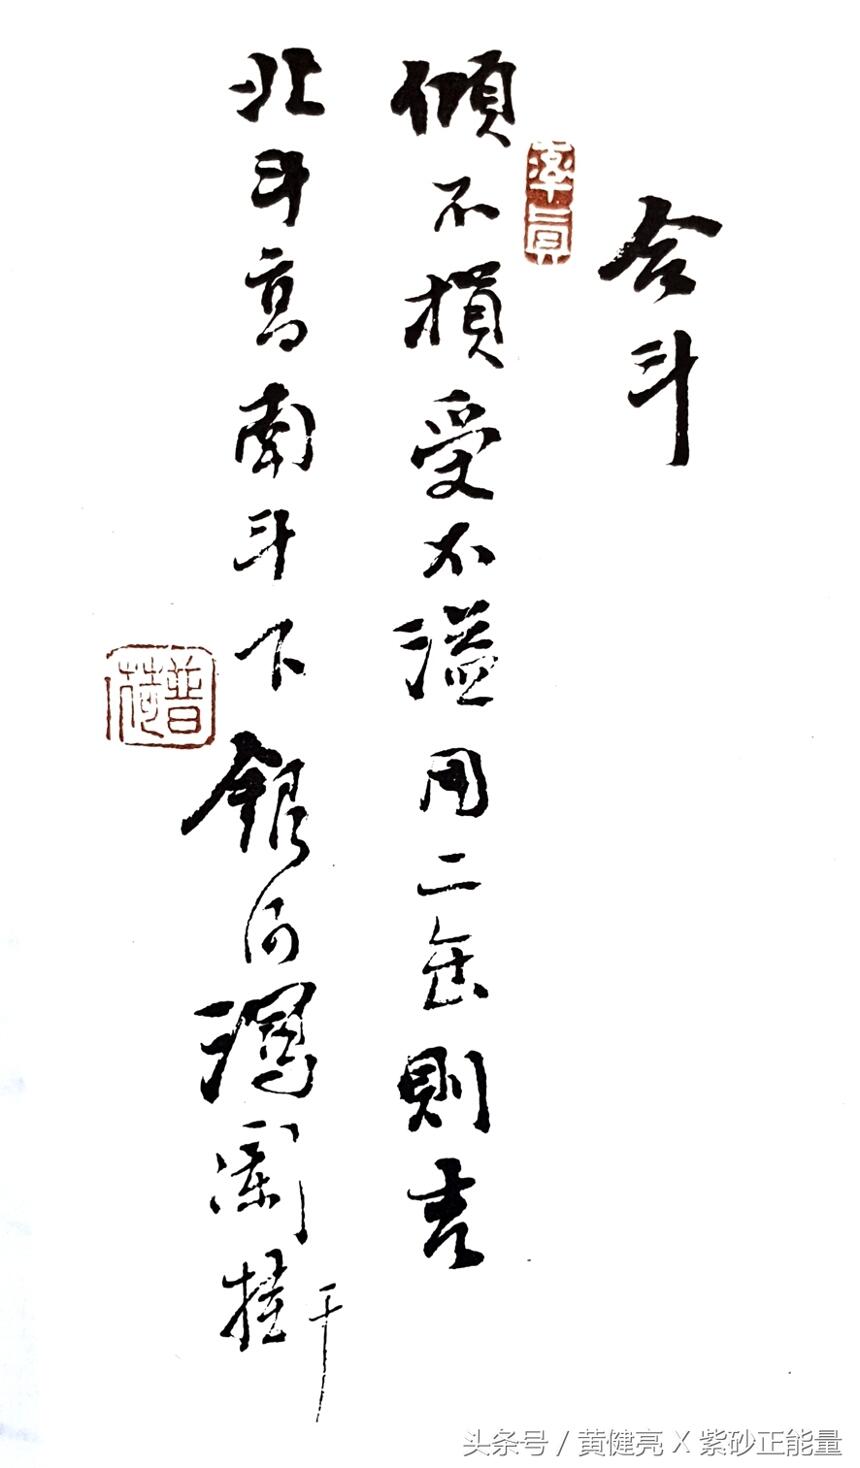 合斗
率真
傾不損受不溢用二缶則吉
北斗高南斗下銀河瀉闌挂
干
普荷
头条号 / 黄健亮 X 紫砂正能量